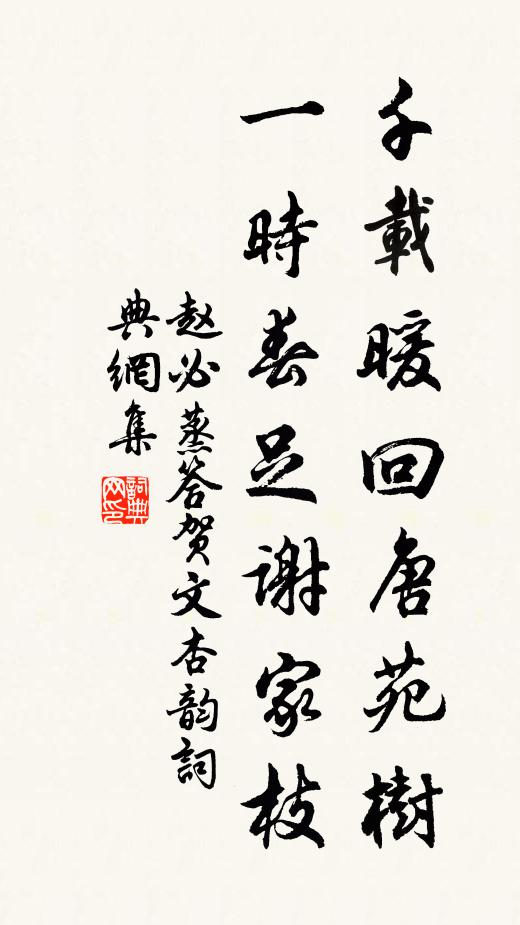 千載暖回唐苑樹
一時春足謝家枝
赵必蒸答贺文杏韵詞
典網集
詞典网印